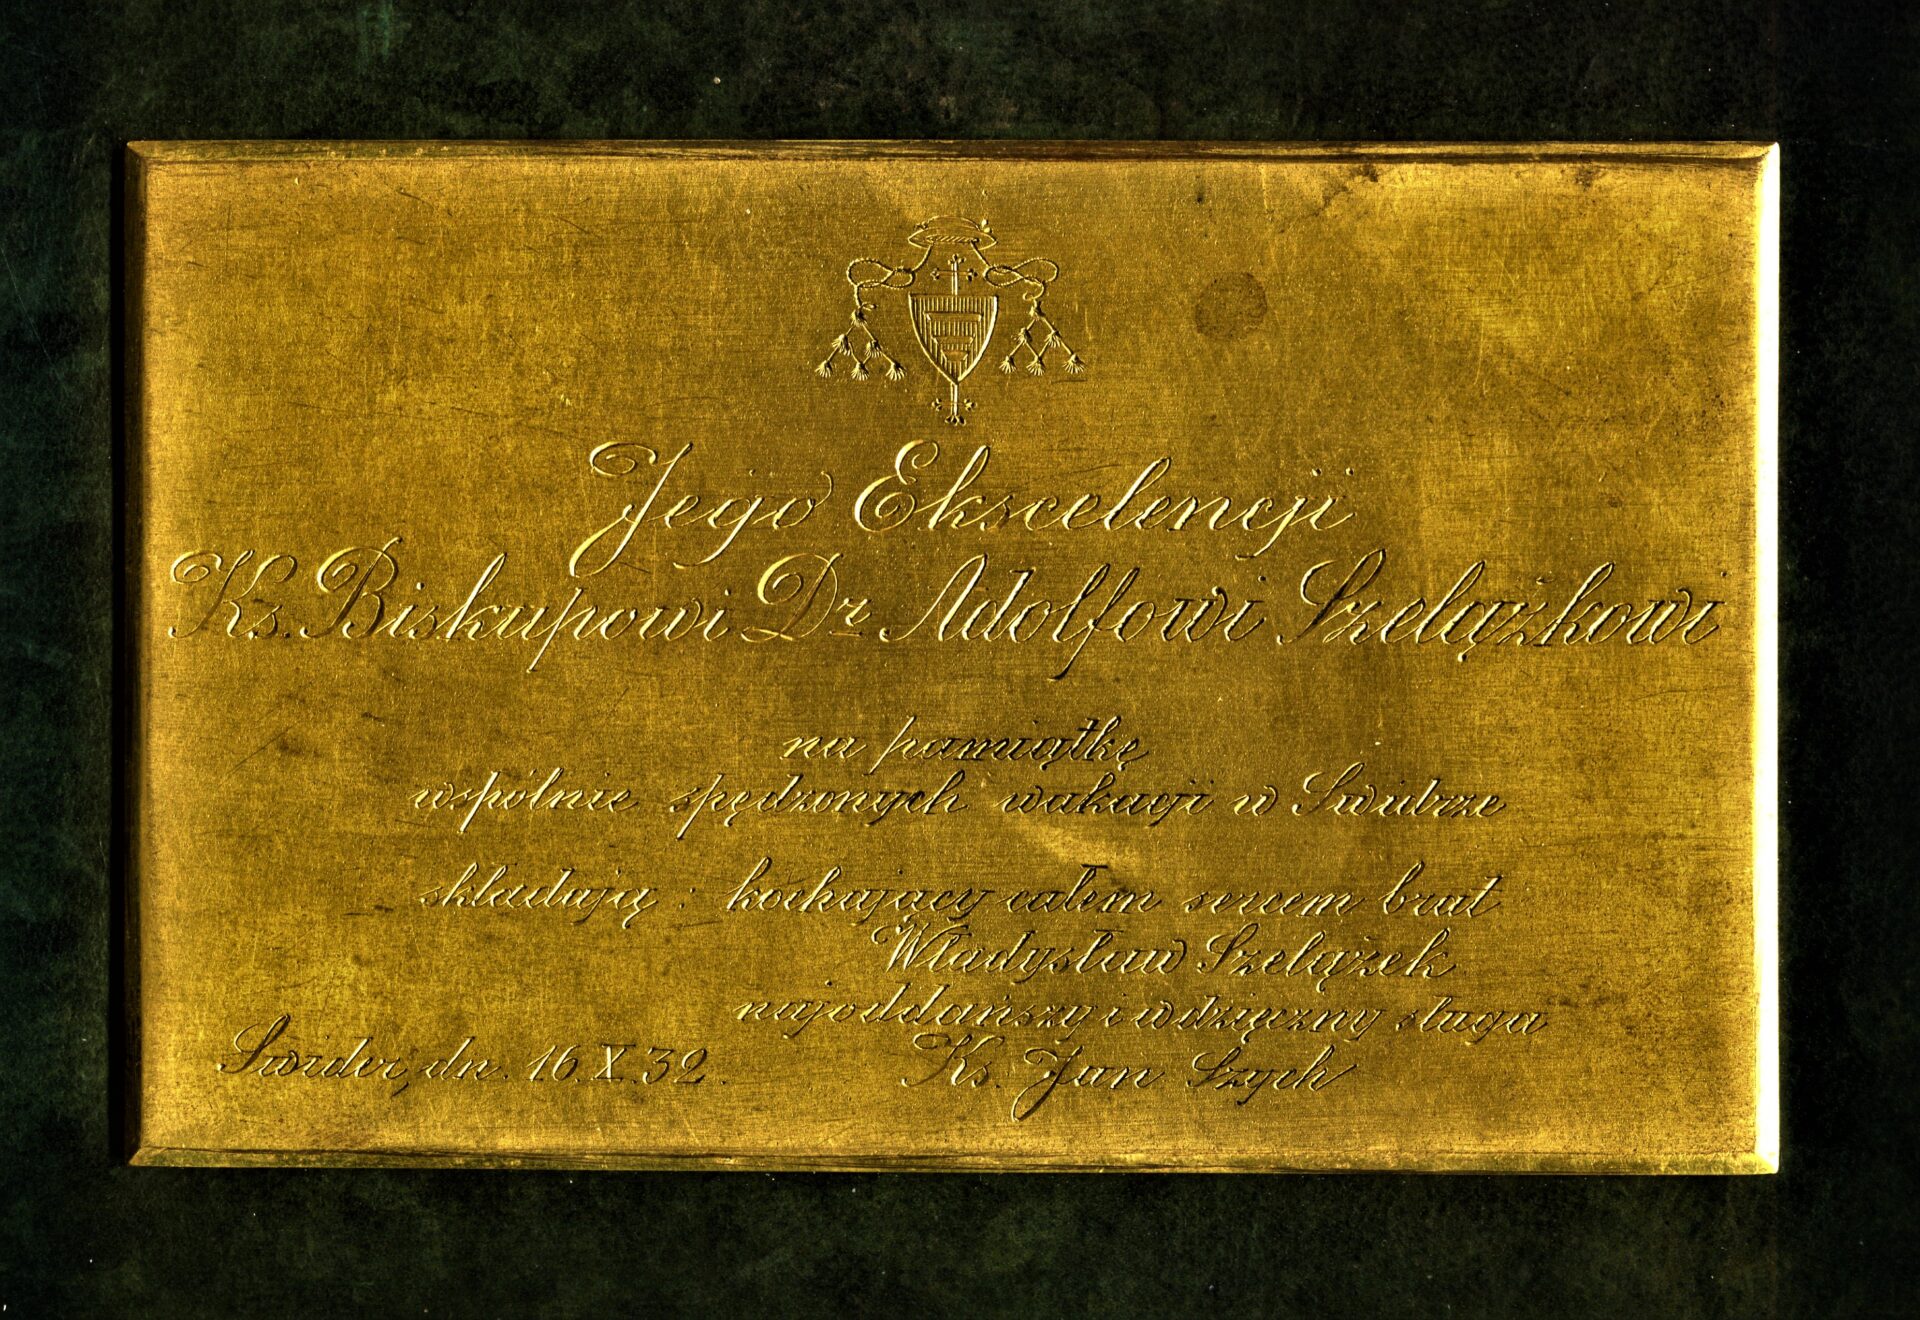 Jego Ekscelencji
Ks. Biskupowi Dr Adolfowi Szelążkowi
na pamiątkę
wspólnie spędzonych wakacji w Świdrze
składają: kochający całem sercem brat
Władysław Szelążek
najoddańszy i wdzięczny sługa
Świder, dn. 16.X.32. Ks. Jan Szych